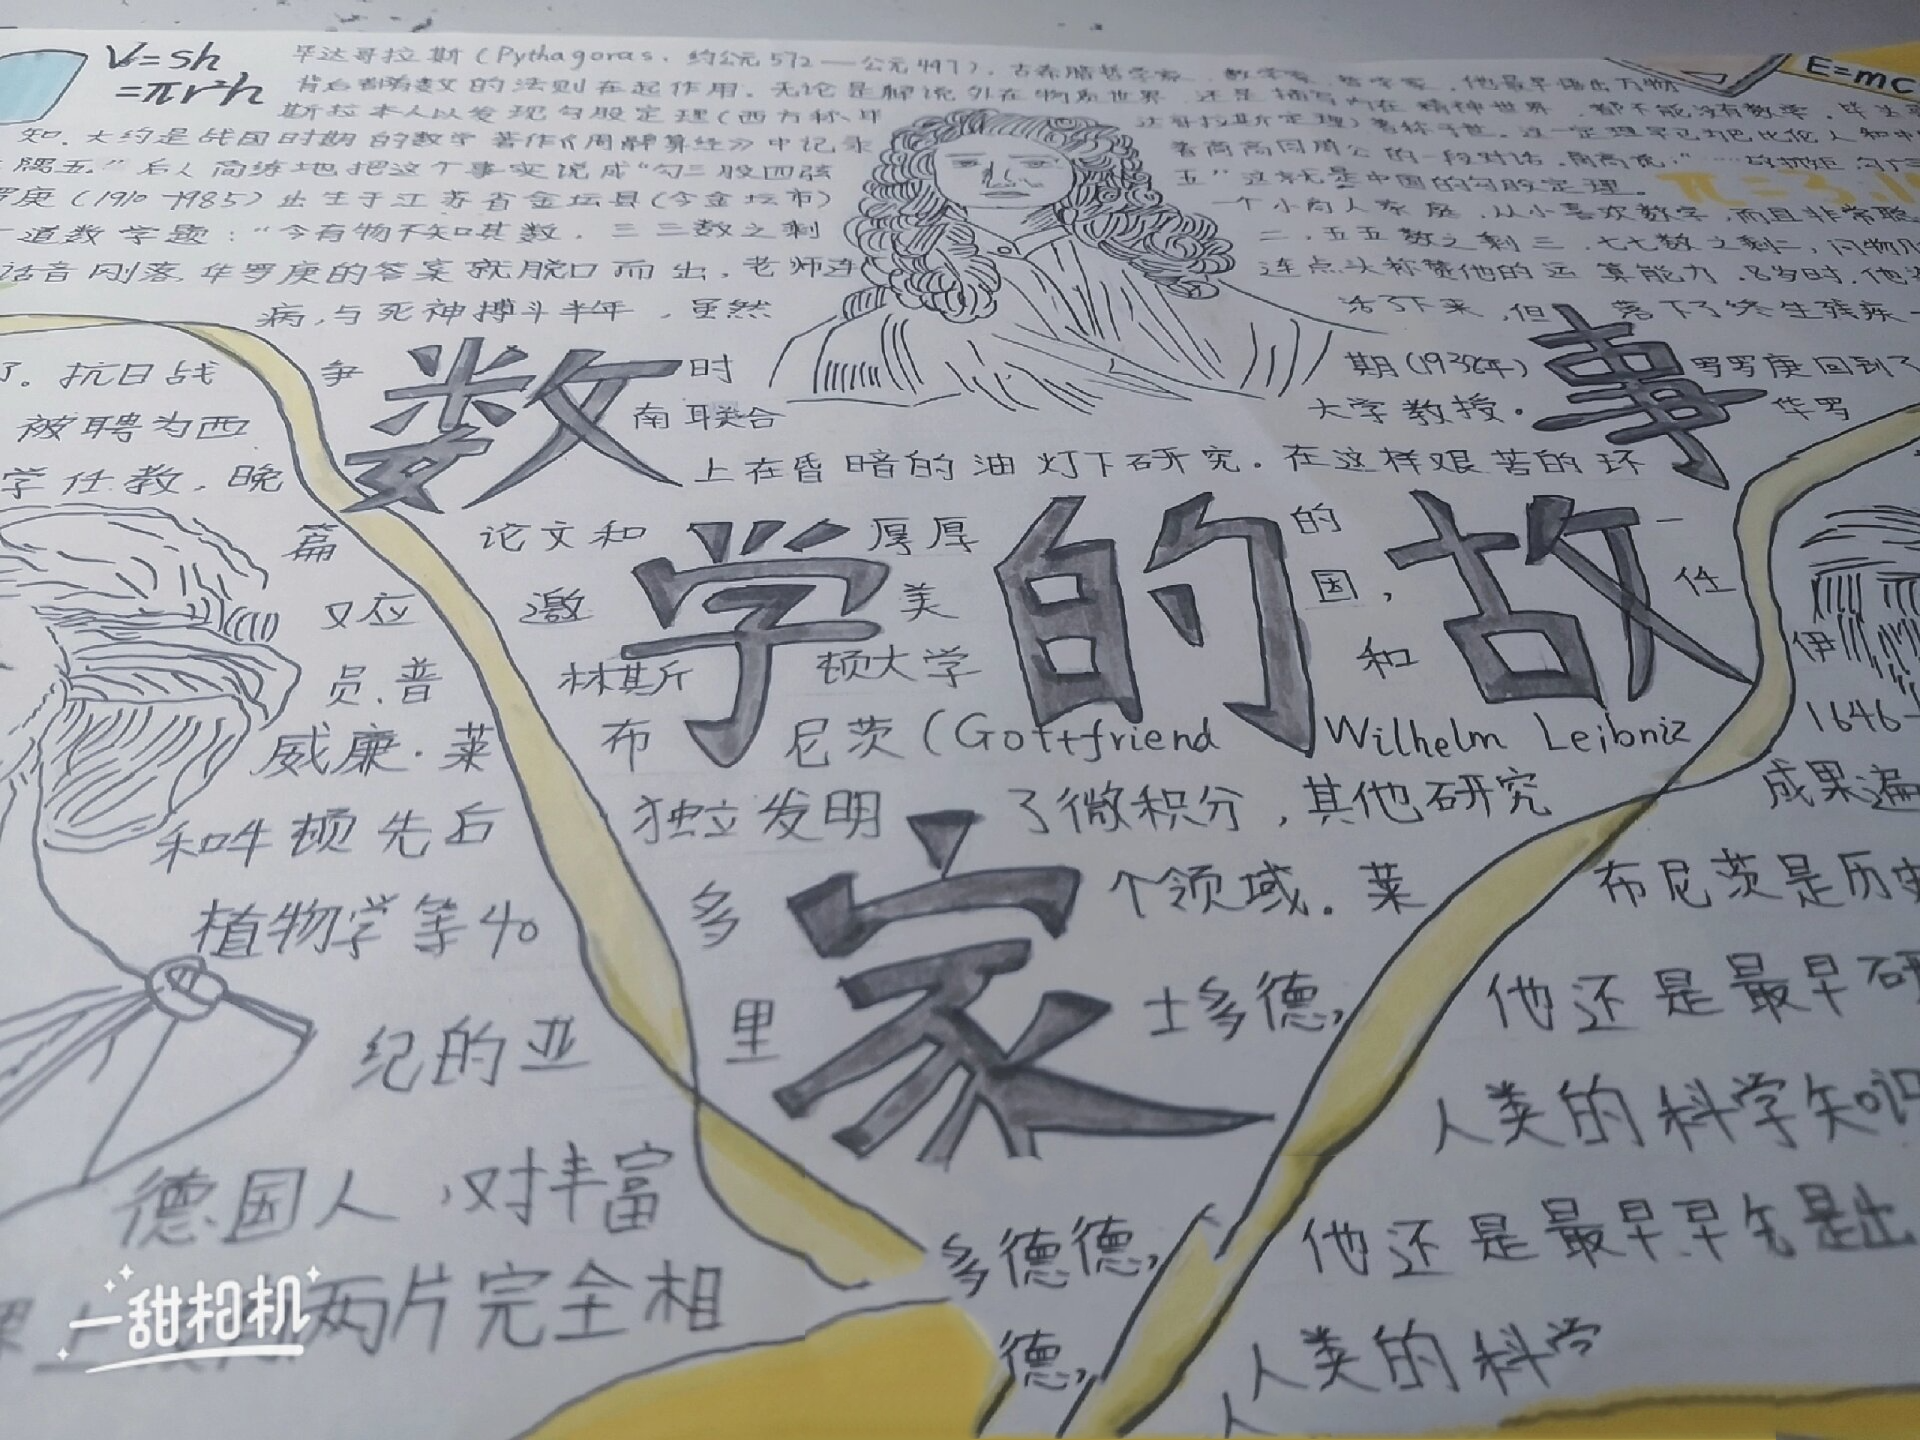 V=sh
=πr²h
E=mc
毕达哥拉斯(Pythagoras,约公元572—公元497),古希腊哲学家、数学家、
的法则在起作用。无论是解说外在物质世界,还是描写内在精神世界,都不能没有数学。
斯拉本人以发现勾股定理(西方称毕达哥拉斯定理)著称于世。这一定理早已
知。大约是战国时期的数学著作《周髀算经》中记录着商高同周公的一段对话。商高说:"……
隅五。"后人简练地把这个事实说成"勾三股四弦五"这就是中国的勾股定理。
π=3.1
罗庚(1910-1985)出生于江苏省金坛县(今金坛市)一个小商人家庭,从小喜欢数学,而且非常聪
道数学题:"今有物不知其数,三三数之剩二,五五数之剩三,七七数之剩二,问物几
话音刚落,华罗庚的答案就脱口而出,老师连连点头称赞他的运算能力。
病,与死神搏斗半年,虽然活了下来,但落下了终生残疾
了。抗日战争时期(1936年)罗罗庚回到了
被聘为西南联合大学教授。华罗
学任教,晚上在昏暗的油灯下研究。在这样艰苦的环
篇论文和厚厚的一
又应邀美国,任
员、普林斯顿大学和伊
威廉·莱布尼茨(Gottfriend Wilhelm Leibniz 1646-
和牛顿先后独立发明了微积分,其他研究成果遍
植物学等40多个领域。莱布尼茨是历史
纪的亚里士多德,他还是最早研
人类的科学知识
德国人,对丰富
多德德,他还是最早早先是出
两片完全相
德,人类的科学
人
数学的故事
家
一甜相机